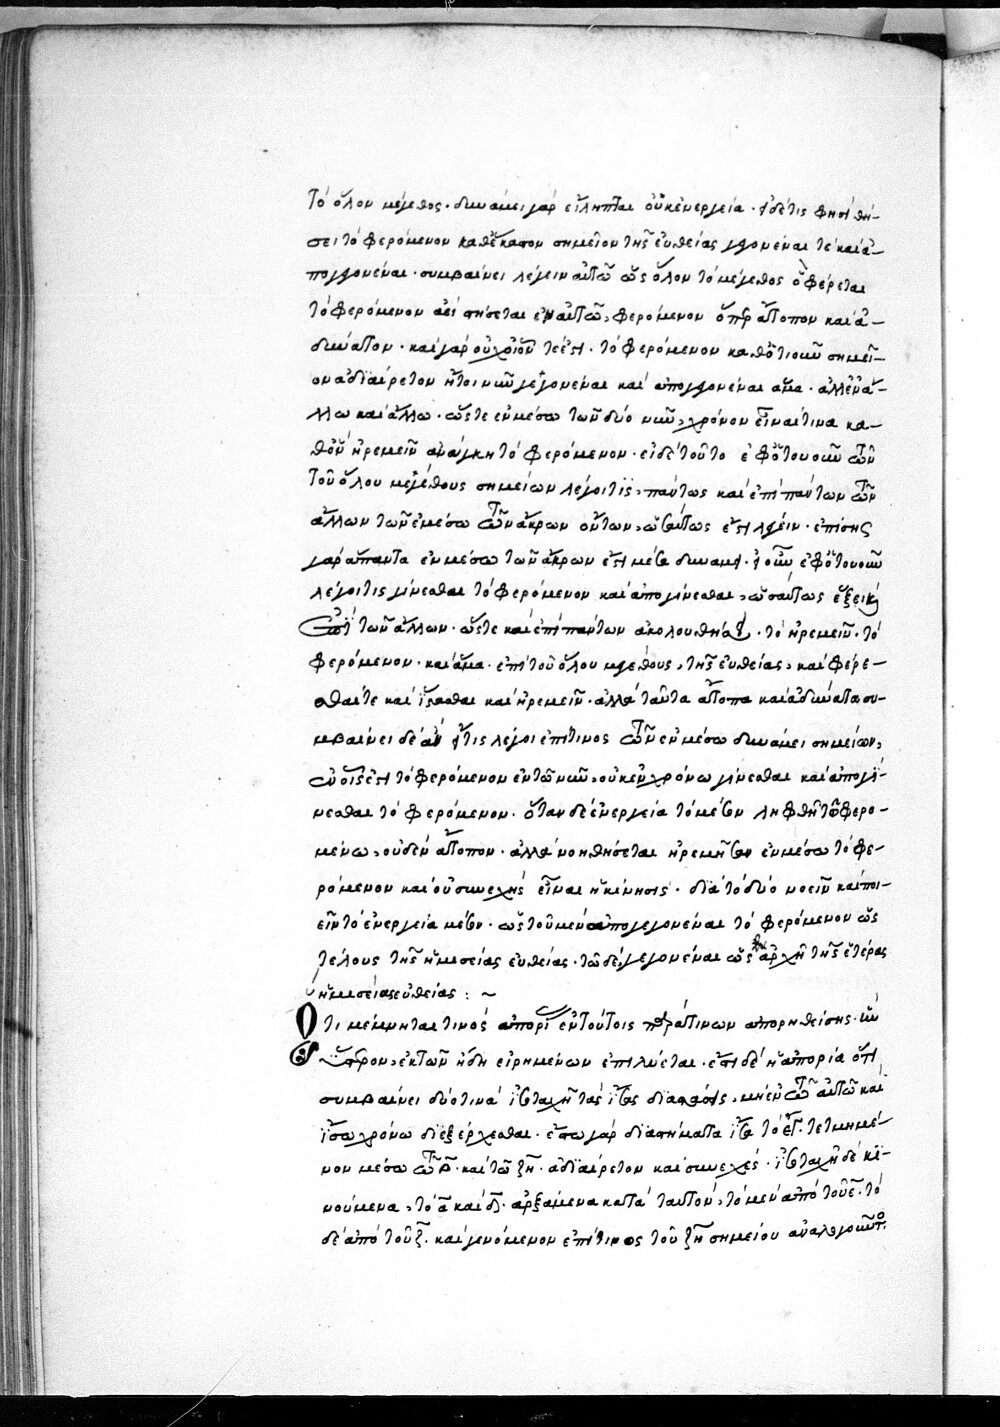 τὸ ὅλον μέγεθος· δυνάμει γὰρ εἴληπται οὐκ ἐνεργεία· εἰ δέ τις φησὶ θή-
σει τὸ φερόμενον καθ' ἕκαστον σημεῖον τῆς εὐθείας γεγονέναι τὲ καὶ ἀ-
πογεγονέναι· συμβαίνει λέγειν αὐτῶ ὡς ὅλον τὸ μέγεθος ὃ φέρεται
τὸ φερόμενον ἀεὶ στήσεται ἐν αὐτῶ, φερόμενον ὅπερ ἄτοπον καὶ ἀ-
δύνατον· καὶ γὰρ οὐχ οἷόν τέ ἐστι· τὸ φερόμενον καθ' ὁτιοῦν σημεῖ-
ον ἀδιαίρετον ἤτοι νῦν γεγονέναι καὶ ἀπογεγονέναι ἅμα· ἀλλ' ἐν ἄ-
λλω καὶ ἄλλω· ὥστε ἐν μέσω τῶν δύο νῦν, χρόνον εἶναι τινα κα-
θ' ὃν ἠρεμεῖν ἀνάγκη τὸ φερόμενον· εἰ δὲ τοῦτο ἐφ' ὁτουοῦν τῶν
τοῦ ὅλου μεγέθους σημείων λέγοι τίς, πάντως καὶ ἐπὶ πάντων τῶν
ἄλλων τῶν ἐν μέσω τῶν ἄκρων ὄντων, ὡσαύτως ἔστι λέγειν· ἐπίσης
γὰρ ἅπαντα ἐν μέσω τῶν ἄκρων ἐστὶ μέσα δυνάμει· εἰ οὖν ἐφ' ὁτουοῦν
λέγοι τις γίνεσθαι τὸ φερόμενον καὶ ἀπογίνεσθαι, ὡσαύτως ἕξει καὶ
ἐπὶ τῶν ἄλλων· ὥστε καὶ ἐπὶ πάντων ἀκολουθήσει· τὸ ἠρεμεῖν· τὸ
φερόμενον· καὶ ἅμα· ἐπὶ τοῦ ὅλου μεγέθους, τῆς εὐθείας, καὶ φέρε-
σθαι τε καὶ ἵστασθαι καὶ ἠρεμεῖν· ἀλλὰ ταῦτα ἄτοπα καὶ ἀδύνατα συ-
μβαίνει δὲ ἂν εἴ τις λέγοι ἐπί τινος τῶν ἐν μέσω δυνάμει σημείων,
τὸ φερόμενον ἐν τῶ νῦν, οὐκ ἐν χρόνω γίνεσθαι καὶ ἀπογί-
νεσθαι τὸ φερόμενον· ὅταν δὲ ἐνεργεία τὸ μέσον ληφθῆ τῶ φερο-
μένω, οὐδὲν ἄτοπον· ἀλλὰ νοηθήσεται ἠρεμῆσαν ἐν μέσω τὸ φε-
ρόμενον καὶ οὐ συνεχὴς εἶναι ἡ κίνησις· διὰ τὸ δύο νοεῖν καὶ ποι-
εῖν τὸ ἐνεργεία μέσον· ὡς τοῦ μὲν ἀπογεγονέναι τὸ φερόμενον ὡς
τέλους τῆς ἡμισείας εὐθείας· τῶ δὲ, γεγονέναι ὡς ἀρχῆ τῆς ἑτέρας
ἡμισείας εὐθείας: ~
Ὅτι μέμνηται τινὸς ἀπορί ἐν τούτοις παρά τινων ἀπορηθείσης· ἣν
ὕστερον, ἐκ τῶν ἤδη εἰρημένων ἐπιλύεται· ἔστι δὲ ἡ ἀπορία ὅτι
συμβαίνει δύο τινὰ ἰσοταχῆ τὰς ἴσας διαστάσεις, μὴ ἐν τῶ αὐτῶ καὶ
ἴσω χρόνω διεξέρχεσθαι· ἔστω γὰρ διαστήματα ἴσα τὸ εγ· τετμημέ-
νον μέσω τῶ β· καὶ τῶ ζη· ἀδιαίρετον καὶ συνεχές· ἰσοταχῆ δὲ κι-
νούμενα, τὸ α καὶ δ· ἀρξάμενα κατὰ ταυτὸν, τὸ μὲν ἀπὸ τοῦ ε· τὸ
δὲ ἀπὸ τοῦ ζ· καὶ γενόμενον ἐπί τινος τοῦ ζη σημείου